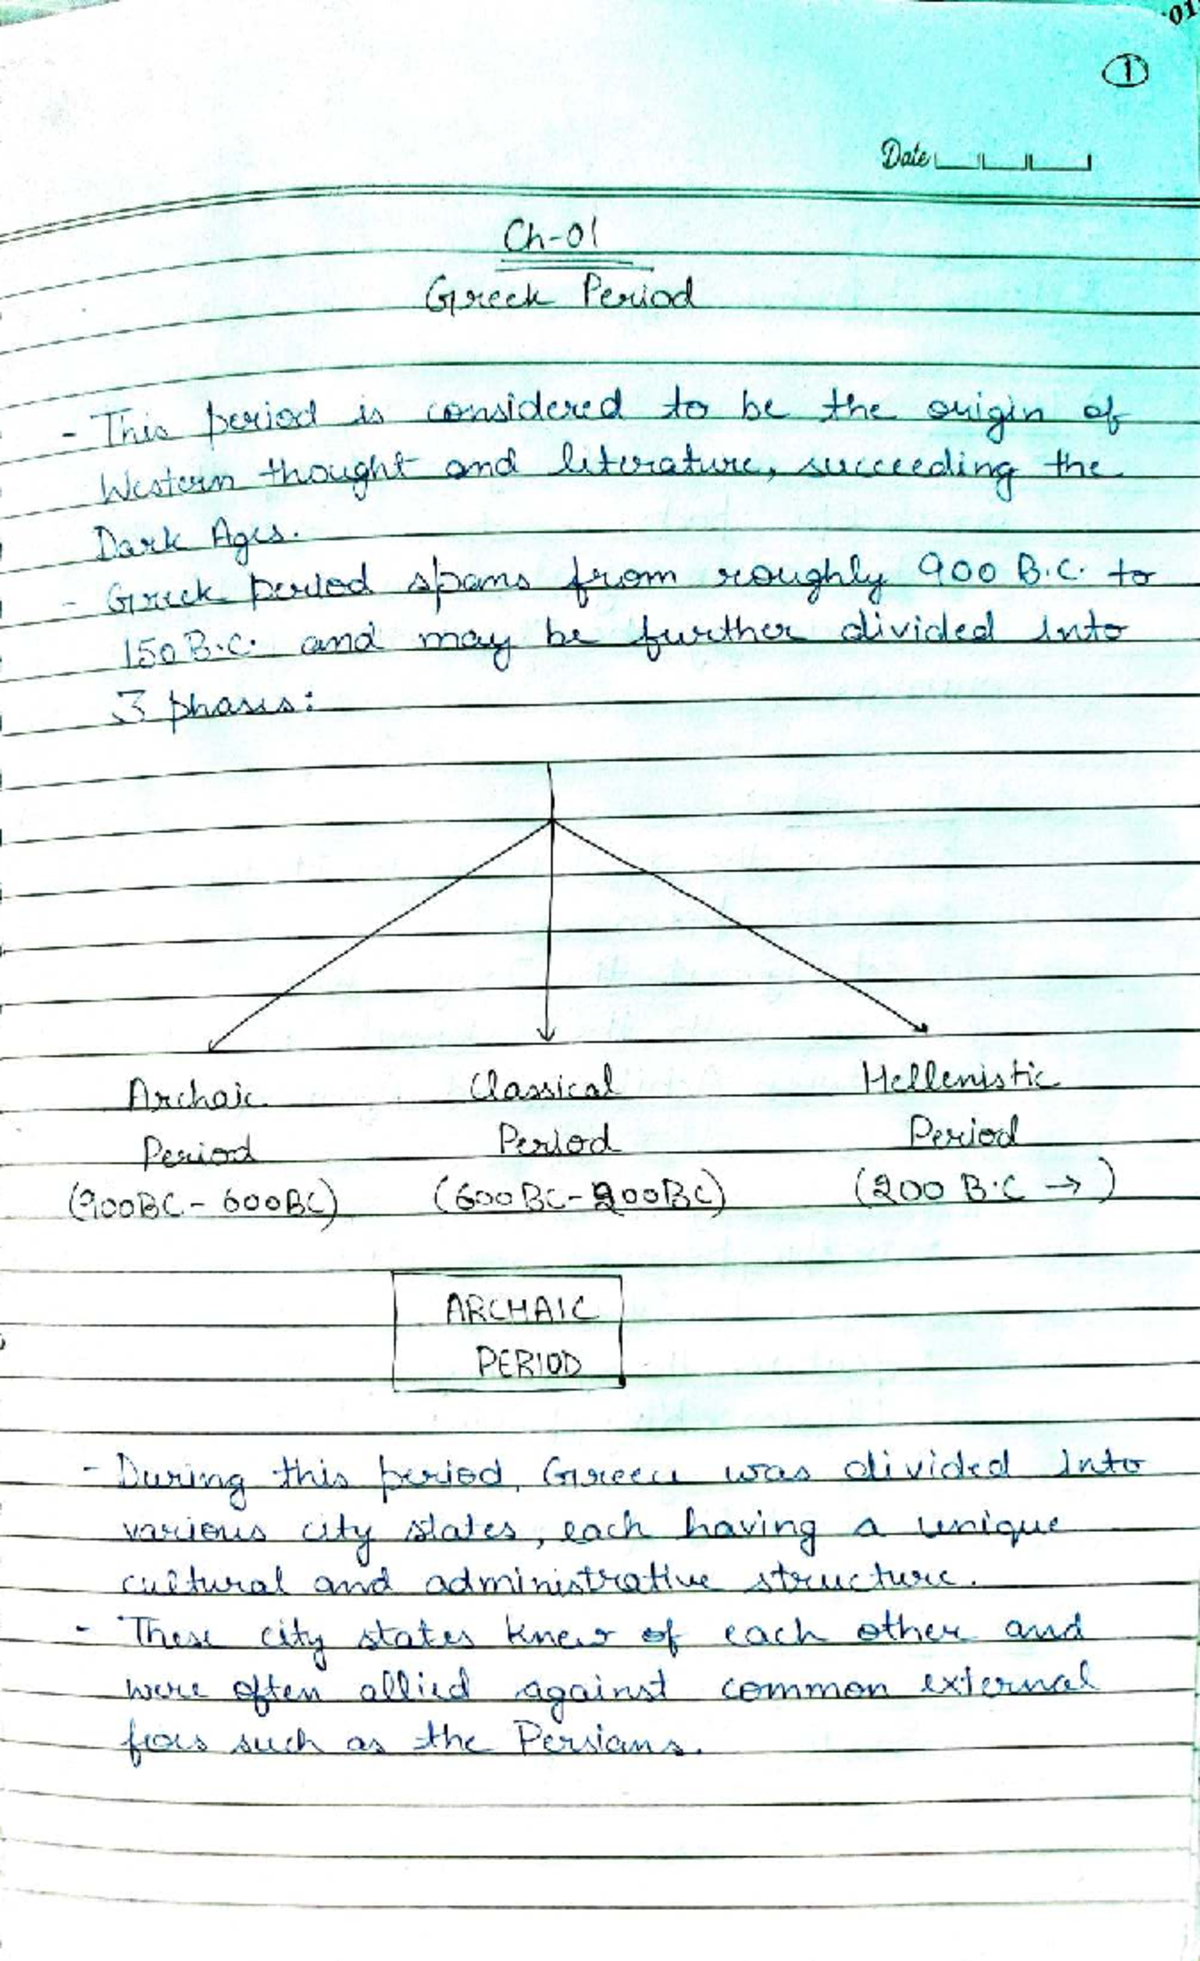 01
1
Date
Ch-01
Greek Period
- This period is considered to be the origin of
Western thought and literature, succeeding the
Dark Ages.
- Greek period spans from roughly 900 B.C. to
150 B.C. and may be further divided into
3 phases:
Archaic Classical Hellenistic
Period Period Period
(900BC - 600BC) (600BC - 200BC) (200 B.C → )
ARCHAIC
PERIOD
- During this period, Greece was divided into
various city states, each having a unique
cultural and administrative structure.
- These city states knew of each other and
were often allied against common external
foes such as the Persians.